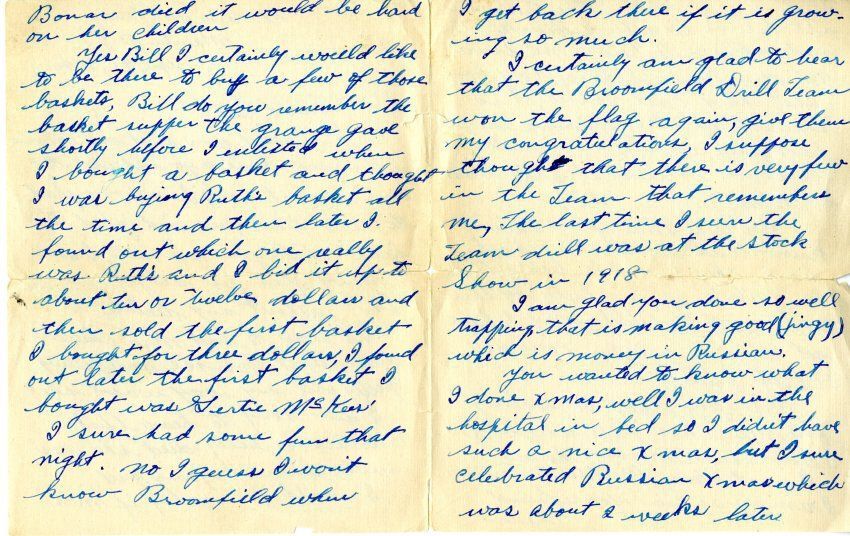 Bonar died it would be hard
on her children
Yes Bill I certainly would like
to be there to buy a few of those
baskets, Bill do you remember the
basket supper the grange gave
shortly before I enlisted when
I bought a basket and thought
I was buying Ruth's basket all
the time and then later I
found out which one really
was Ruth's and I bid it up to
about ten or twelve dollars and
then sold the first basket
I bought for three dollars, I found
out later the first basket I
bought was Gertie McKees'
I sure had some fun that
night. no I guess I won't
know Broomfield when
I get back there if it is grow-
ing so much.
I certainly am glad to hear
that the Broomfield Drill Team
won the flag again, give them
my congratulations, I suppose
though that there is very few
in the Team that remembers
me, The last time I seen the
Team drill was at the stock
Show in 1918
I am glad you done so well
trapping, that is making good (jingy)
which is money in Russian.
You wanted to know what
I done Xmas, well I was in the
hospital in bed so I didn't have
such a nice Xmas, but I sure
celebrated Russian Xmas which
was about 2 weeks later